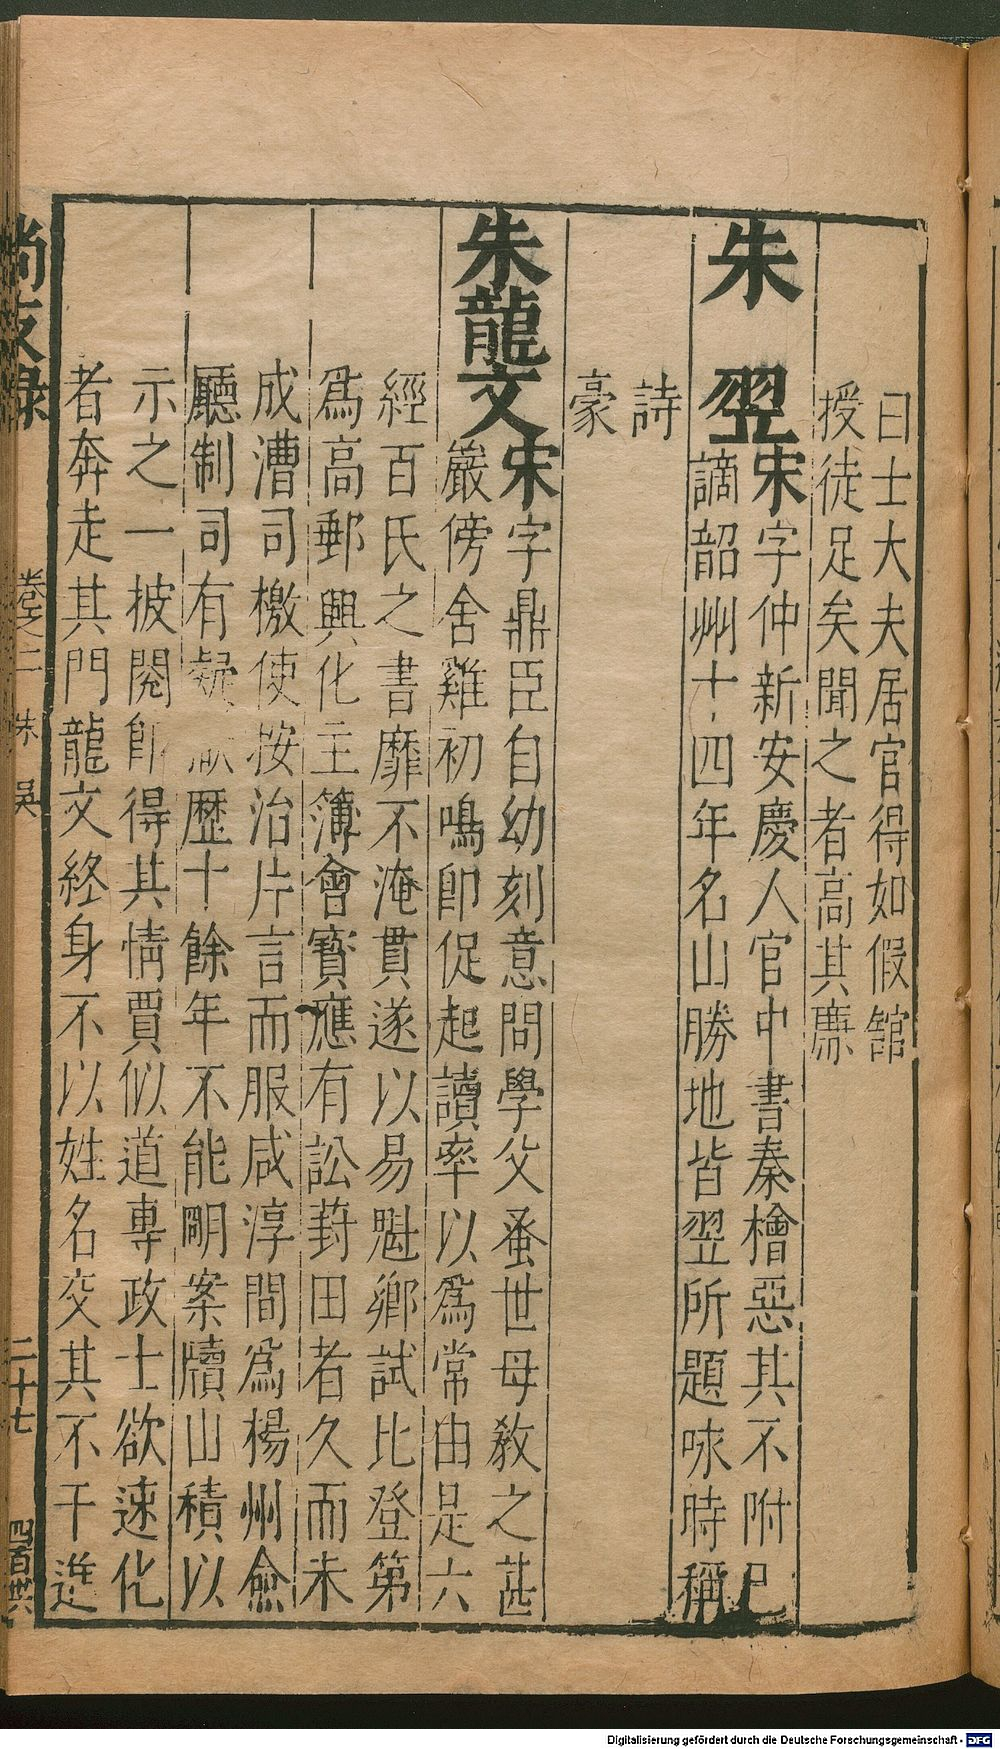 曰士大夫居官得如假舘
授徒足矣聞之者高其廉
朱翌宋字仲新安慶人官中書秦檜惡其不附己
謫韶州十四年名山勝地皆翌所題咏時稱
詩
豪
朱龍文宋字鼎臣自幼刻意問學父蚤世母敎之甚
嚴傍舍雞初鳴卽促起讀率以爲常由是六
經百氏之書靡不淹貫遂以易魁鄉試比登第
爲高郵興化主簿會寶應有訟葑田者久而未
成漕司檄使按治片言而服咸淳間爲楊州僉
廳制司有疑獄歷十餘年不能明案牘山積以
示之一披閱卽得其情賈似道專政士欲速化
者奔走其門龍文終身不以姓名交其不干進
尚友錄 卷之二 朱 吳 二十七 四百廿六
Digitalisierung gefördert durch die Deutsche Forschungsgemeinschaft - DFG